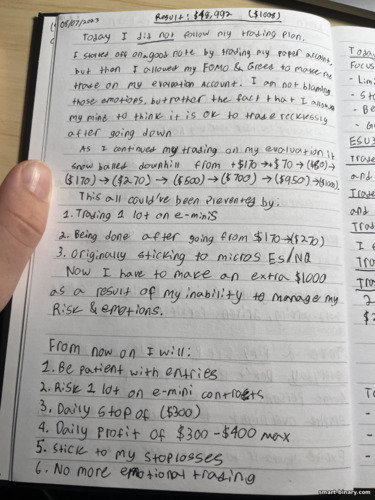 08/07/2023
Result: $48,992 ($1008)
Today I did not follow my trading plan.
I started off on a good note by trading my paper account,
but then I allowed my FOMO & Greed to make me
trade on my evaluation account. I am not blaming
those emotions, but rather the fact that I allowed
my mind to think it is ok to trade recklessly
after going down
As I continued my trading on my evaluation it
snow balled downhill from +$170 → +$70 → ($80) →
($170) → ($270) → ($500) → ($700) → ($950) → ($1008).
This all could've been prevented by:
1. Trading 1 lot on e-minis
2. Being done after going from $170 → ($270)
3. Originally sticking to micros ES/NQ
Now I have to make an extra $1000
as a result of my inability to manage my
Risk & emotions.
From now on I will:
1. Be patient with entries
2. Risk 1 lot on e-mini contracts
3. Daily stop of ($300)
4. Daily profit of $300-$400 max
5. Stick to my stoplosses
6. No more emotional trading
smart-binary.com